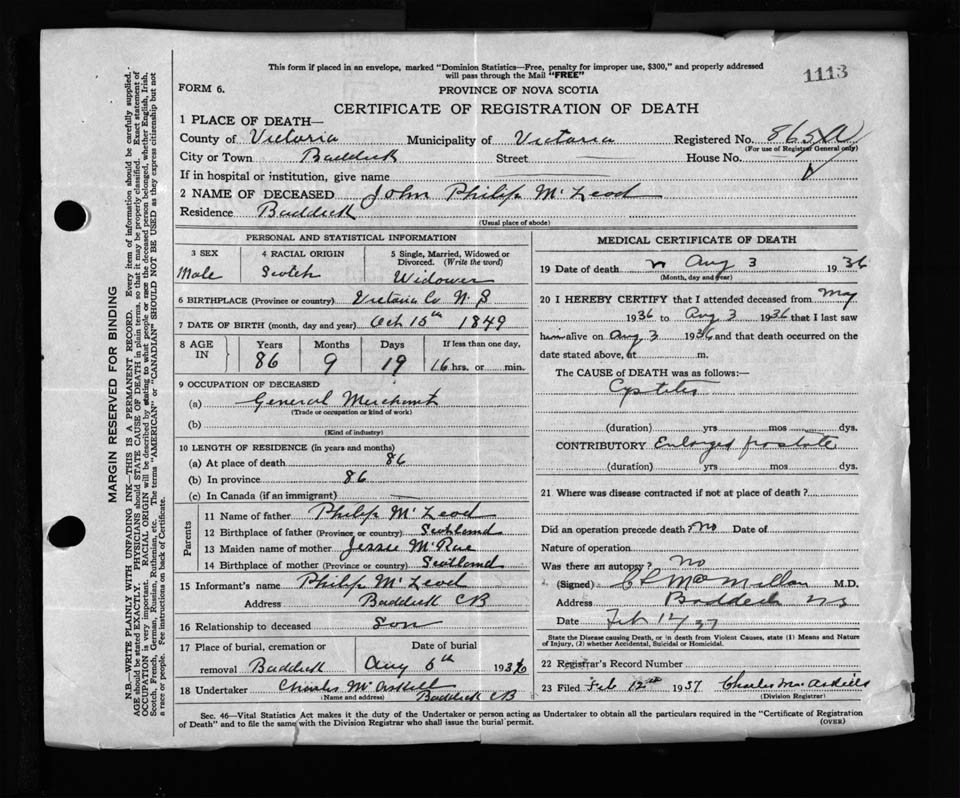 This form if placed in an envelope, marked "Dominion Statistics—Free, penalty for improper use, $300," and properly addressed
will pass through the Mail "FREE"
1113
FORM 6.
PROVINCE OF NOVA SCOTIA
CERTIFICATE OF REGISTRATION OF DEATH
1 PLACE OF DEATH—
County of Victoria Municipality of Victoria Registered No. 865A
(For use of Registrar General only)
City or Town Baddeck Street House No.
If in hospital or institution, give name
2 NAME OF DECEASED John Philip McLeod
Residence Baddeck
(Usual place of abode)
PERSONAL AND STATISTICAL INFORMATION
3 SEX 4 RACIAL ORIGIN 5 Single, Married, Widowed or Divorced. (Write the word)
Male Scotch Widower
6 BIRTHPLACE (Province or country) Victoria Co N S
7 DATE OF BIRTH (month, day and year) Oct 15th 1849
8 AGE IN Years Months Days If less than one day,
86 9 19 16 hrs. or min.
9 OCCUPATION OF DECEASED
(a) General Merchant
(Trade or occupation or kind of work)
(b)
(Kind of industry)
10 LENGTH OF RESIDENCE (in years and months)
(a) At place of death 86
(b) In province 86
(c) In Canada (if an immigrant)
Parents
11 Name of father Philip McLeod
12 Birthplace of father (Province or country) Scotland
13 Maiden name of mother Jessie McRae
14 Birthplace of mother (Province or Country) Scotland
15 Informant's name Philip McLeod
Address Baddeck CB
16 Relationship to deceased Son
17 Place of burial, cremation or Date of burial
removal Baddeck Aug 6th 1936
18 Undertaker Charles McAskill Baddeck CB
(Name and address)
MEDICAL CERTIFICATE OF DEATH
19 Date of death Aug 3 1936
(Month, day and year)
20 I HEREBY CERTIFY that I attended deceased from May
1936 to Aug 3 1936 that I last saw
him alive on Aug 3 1936 and that death occurred on the
date stated above, at m.
The CAUSE of DEATH was as follows:—
Cystitis
(duration) yrs mos dys.
CONTRIBUTORY Enlarged prostate
(duration) yrs mos dys.
21 Where was disease contracted if not at place of death?
Did an operation precede death? No Date of
Nature of operation
Was there an autopsy? No
(Signed) C L McMillan M.D.
Address Baddeck NS
Date Feb 12/37
State the Disease causing Death, or in death from Violent Causes, state (1) Means and Nature
of Injury, (2) whether Accidental, Suicidal or Homicidal.
22 Registrar's Record Number
23 Filed Feb 12th 1937 Charles McAskill
(Division Registrar)
Sec. 46—Vital Statistics Act makes it the duty of the Undertaker or person acting as Undertaker to obtain all the particulars required in the "Certificate of Registration
of Death" and to file the same with the Division Registrar who shall issue the burial permit.
(OVER)
MARGIN RESERVED FOR BINDING
N.B.—WRITE PLAINLY WITH UNFADING INK—THIS IS A PERMANENT RECORD. Every item of information should be carefully supplied.
AGE should be stated EXACTLY. PHYSICIANS should STATE CAUSE OF DEATH in plain terms, so that it may be properly classified. Exact statement of
OCCUPATION is very important. RACIAL ORIGIN will be described by stating to what people or race the deceased person belonged, whether English, Irish,
Scotch, French, German, Russian, Ruthenian, etc. The terms "AMERICAN" or "CANADIAN" SHOULD NOT BE USED as they express citizenship but not
a race or people. See instructions on back of Certificate.